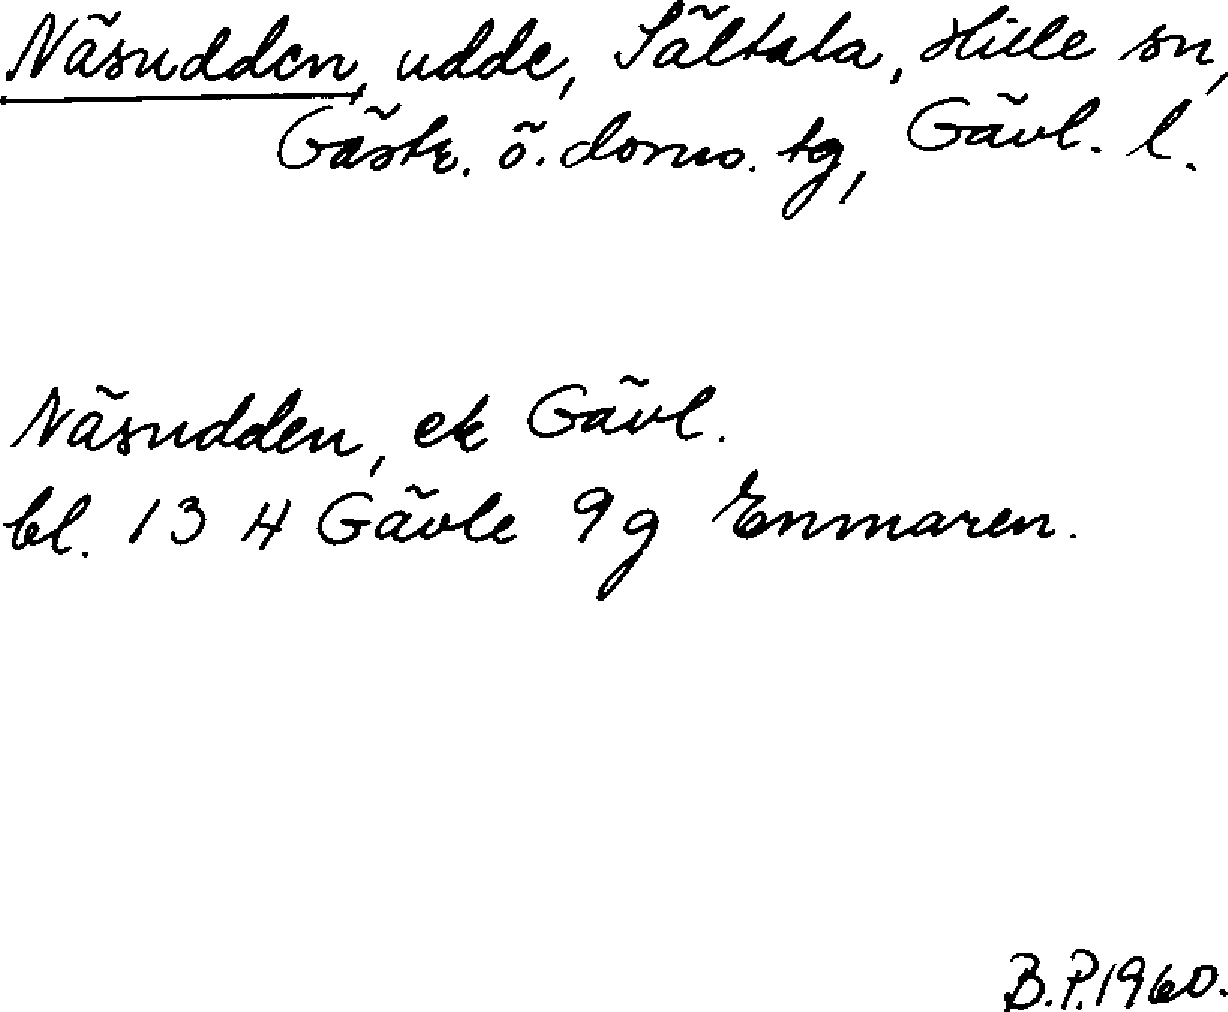 Näsudden, udde, Sältala, Hille sn,
Gästr. ö. doms. tg, Gävl. l.
Näsudden, ek Gävl.
bl. 13 H Gävle 9g Enmaren.
B.P.1960.